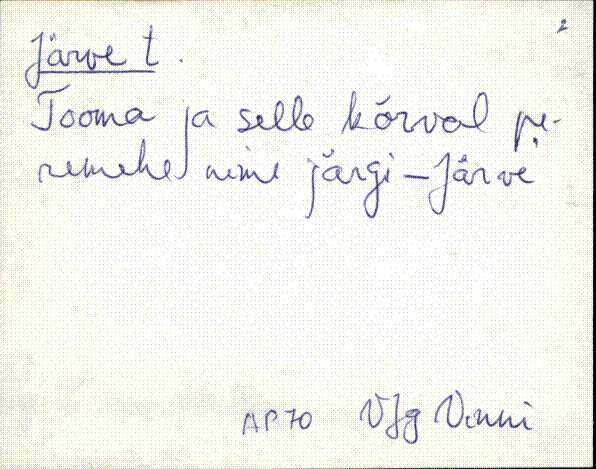 2
Järve t.
Tooma ja selle kõrval pe-
remehe nime järgi – Järve
AP70 VJg Vinni